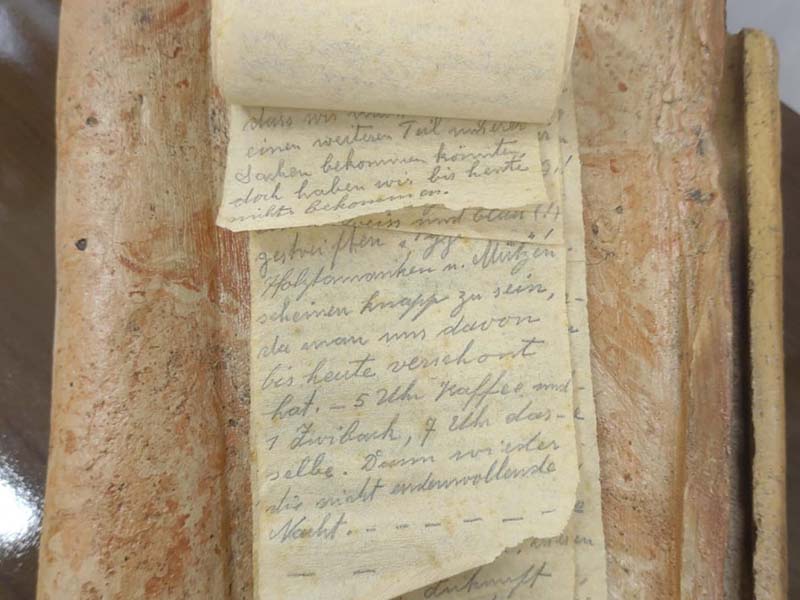 dass wir
einen weiteren Teil unserer
Sachen bekommen könnten,
doch haben wir bis heute
nichts bekommen.
weiss und blau (!)
gestreiften
Holzpantinen u. Mützen
scheinen knapp zu sein,
da man uns davon
bis heute verschont
hat. – 5 Uhr Kaffee und
1 Zwiback, 7 Uhr das-
selbe. Dann wieder
die nicht endenwollende
Nacht. – – – – – –
– –
Zukunft